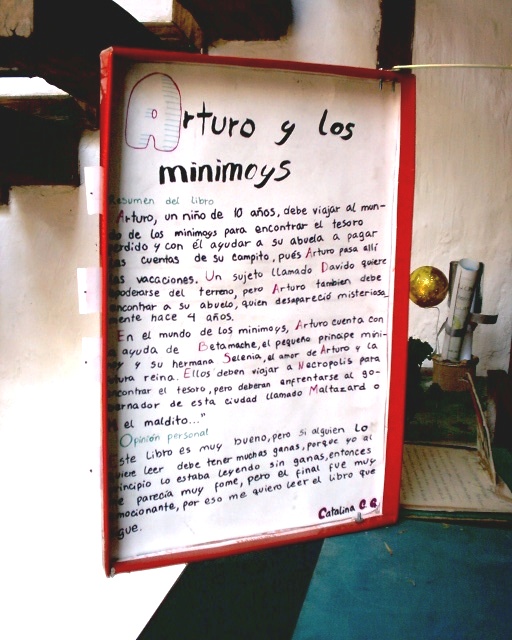 Arturo y los
minimoys
Resumen del libro
Arturo, un niño de 10 años, debe viajar al mun-
do de los minimoys para encontrar el tesoro
perdido y con él ayudar a su abuela a pagar
las cuentas de su campito, pués Arturo pasa allí
las vacaciones. Un sujeto llamado Davido quiere
apoderarse del terreno, pero Arturo tambien debe
encontrar a su abuelo, quien desapareció misteriosa
mente hace 4 años.
En el mundo de los minimoys, Arturo cuenta con
la ayuda de Betameche, el pequeño principe mini-
moy y su hermana Selenia, el amor de Arturo y la
futura reina. Ellos deben viajar a Necropolis para
encontrar el tesoro, pero deberan enfrentarse al go-
bernador de esta ciudad llamado Maltazard o
M el maldito..."
Opinión personal
Este Libro es muy bueno, pero si alguien lo
quiere leer debe tener muchas ganas, porque yo al
principio lo estaba leyendo sin ganas, entonces
me parecia muy fome, pero el final fue muy
emocionante, por eso me quiero leer el libro que
sigue.
Catalina C. G.